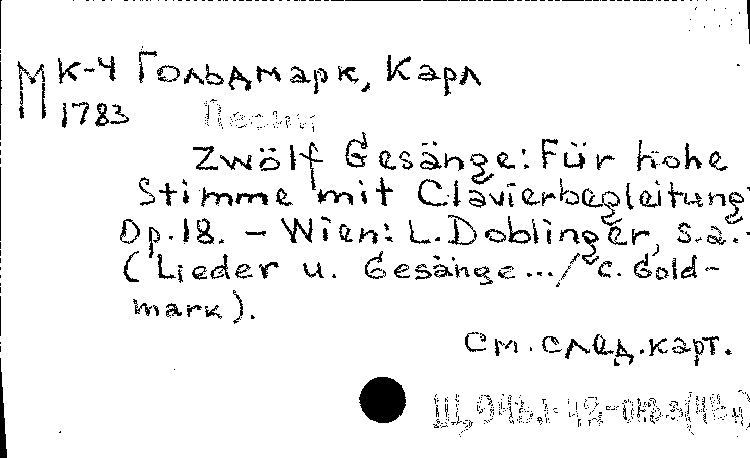 М К-4 Гольдмарк, Карл
1783 Песни
Zwölf Gesänge: Für hohe
Stimme mit Clavierbegleitung
Op. 18. – Wien: L. Doblinger, s.a. –
(Lieder u. Gesänge .../ C. Gold-
mark).
См. след. карт.